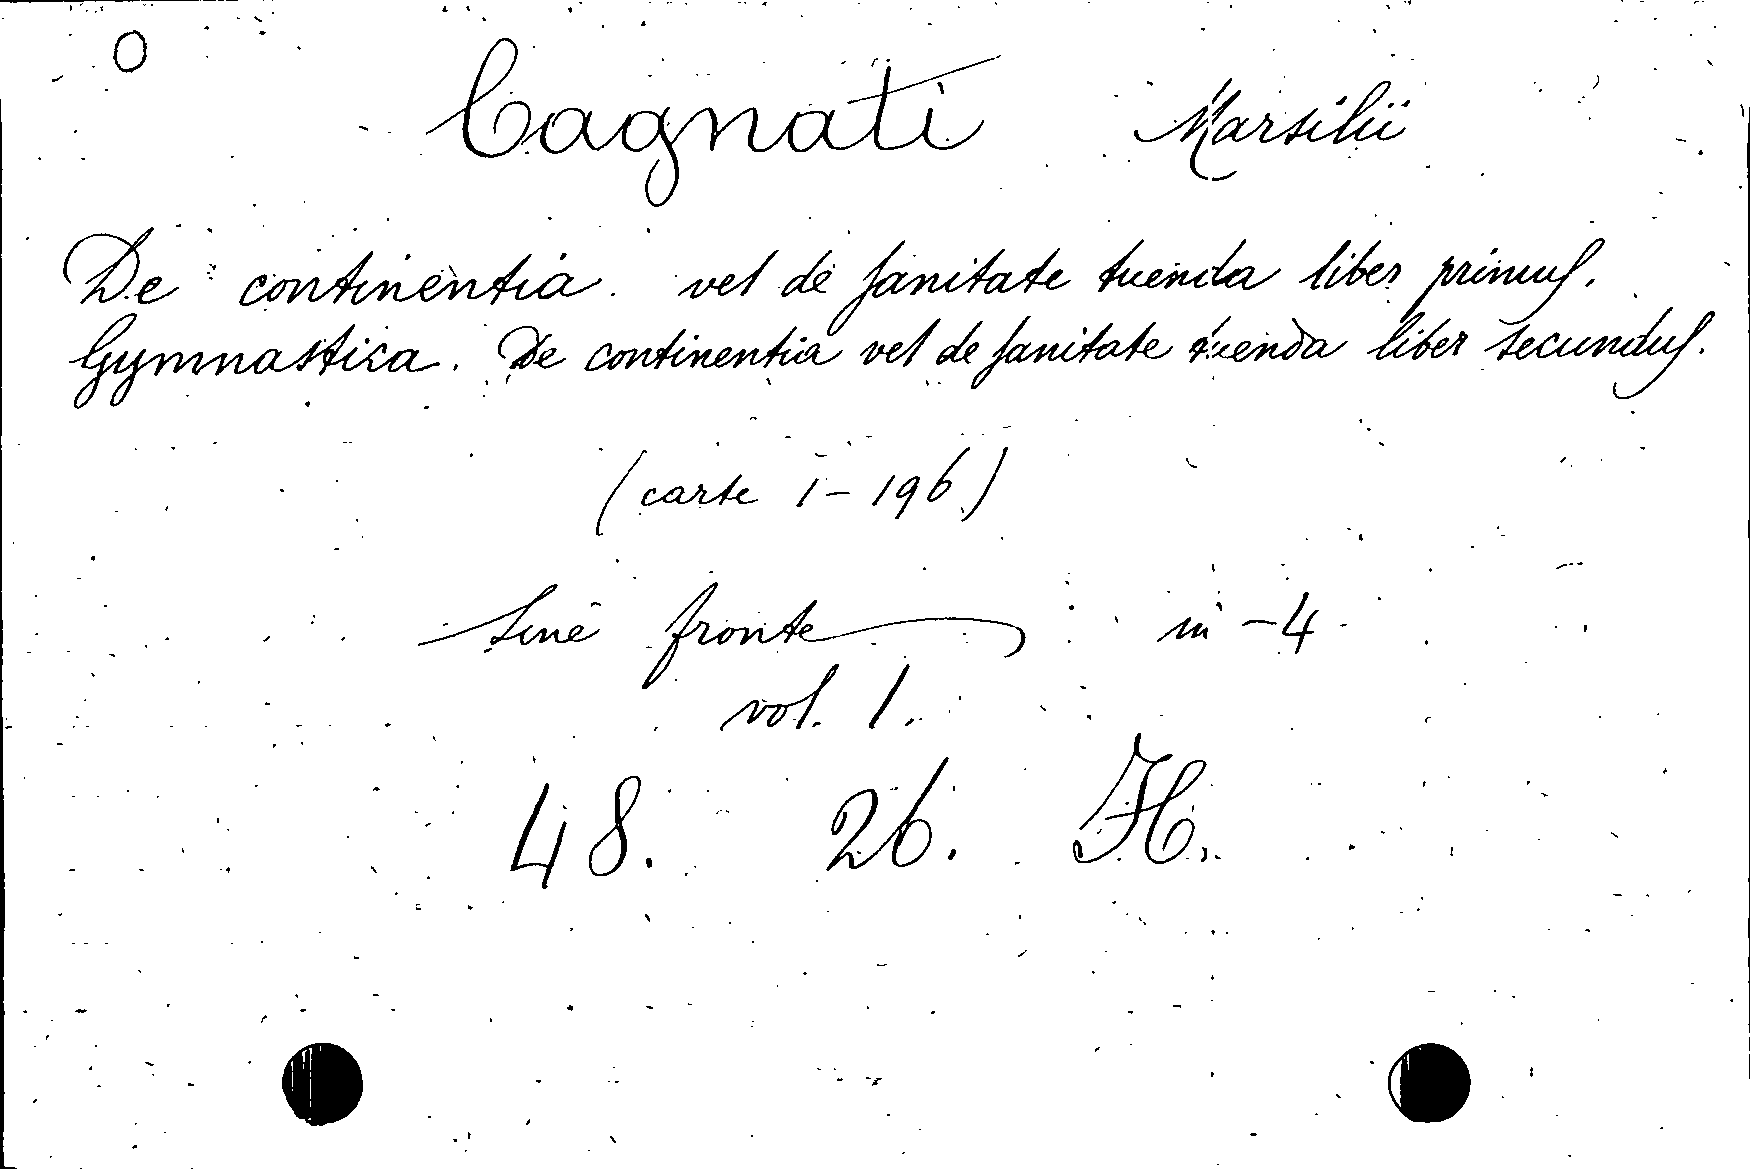 O
Cagnati Marsilii
De continentia vel de sanitate tuenda liber primus.
Gymnastica. De continentia vel de sanitate tuenda liber secundus.
(carte 1-196)
Sine fronte in-4
vol. 1.
48. 26. H.